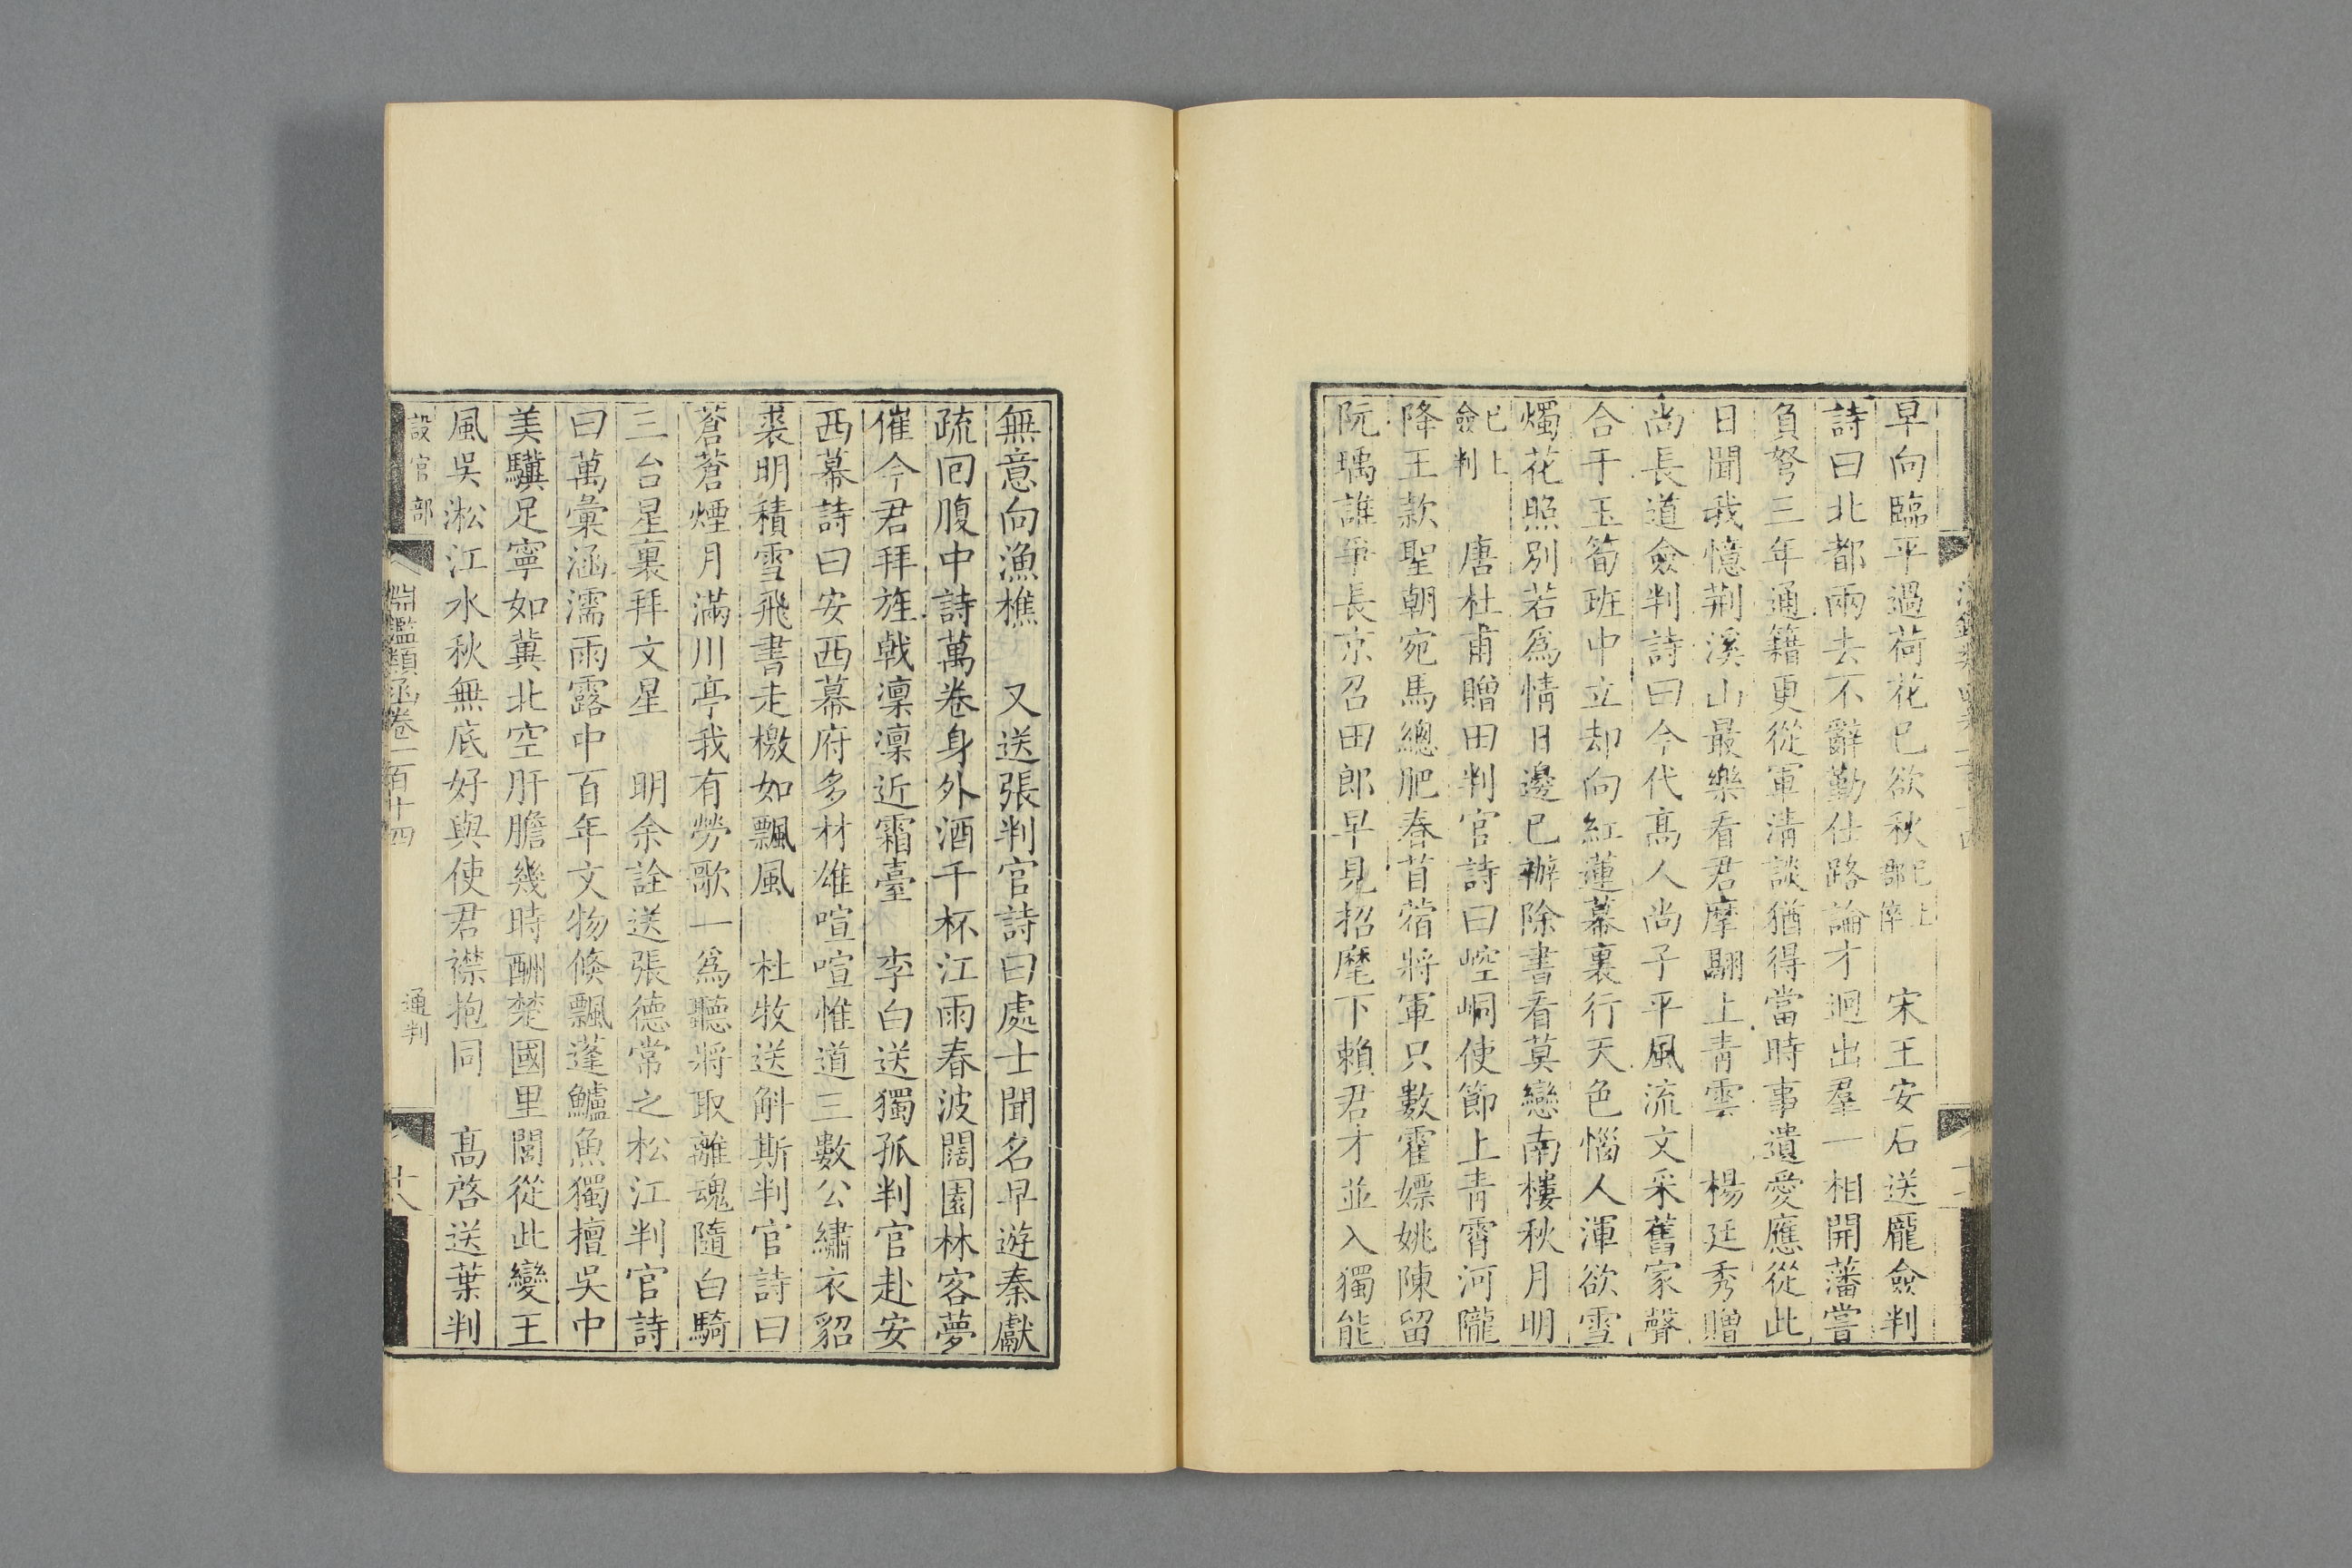 早向臨平過荷花已欲秋已上郡倅　宋王安石送龐僉判
詩曰北都兩去不辭勤仕路論才迥出羣一相開藩嘗
負弩三年通籍更從軍清談猶得當時事遺愛應從此
日聞我憶荆溪山最樂看君摩翮上青雲　楊廷秀贈
尚長道僉判詩曰今代髙人尚子平風流文采舊家聲
合于玉筍班中立却向紅蓮幕裏行天色惱人渾欲雪
燭花照別若爲情日邊已辦除書看莫戀南樓秋月明
已上僉判　唐杜甫贈田判官詩曰崆峒使節上青霄河隴
降王款聖朝宛馬總肥春苜蓿將軍只數霍嫖姚陳留
阮瑀誰爭長京召田郎早見招麾下賴君才並入獨能
無意向漁樵　又送張判官詩曰處士聞名早遊秦獻
疏回腹中詩萬卷身外酒千杯江雨春波闊園林客夢
催今君拜旌戟凜凜近霜臺　李白送獨孤判官赴安
西幕詩曰安西幕府多材雄喧喧惟道三數公繡衣貂
裘明積雪飛書走檄如飄風　杜牧送斛斯判官詩曰
蒼蒼煙月滿川亭我有勞歌一爲聽將取離魂隨白騎
三台星裏拜文星　明余詮送張德常之松江判官詩
曰萬彙涵濡雨露中百年文物倏飄蓬鱸魚獨擅吳中
美驥足寧如冀北空肝膽幾時酬楚國里閭從此變王
風吳淞江水秋無底好與使君襟抱同　髙啓送葉判
設官部　淵鑑類函卷一百十四　通判　十八